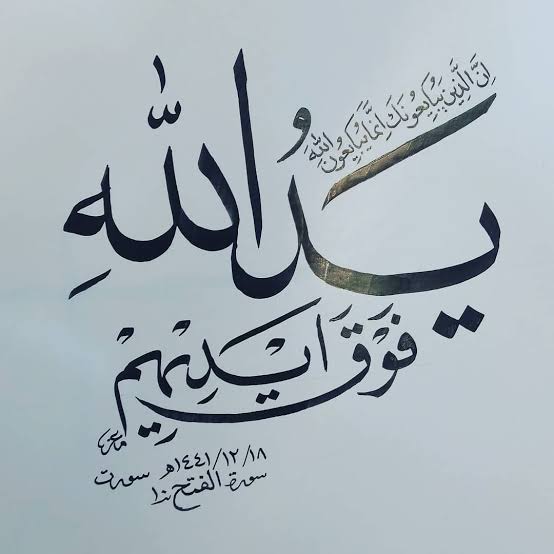 اِنَّ الَّذِينَ يُبَايِعُونَكَ اِنَّمَا يُبَايِعُونَ اللّٰهَ
يَدُ اللّٰهِ
فَوْقَ اَيْدِيْهِمْ
١٤٤١/١٢/١٨هـ سورت
سورة الفتح ١٠